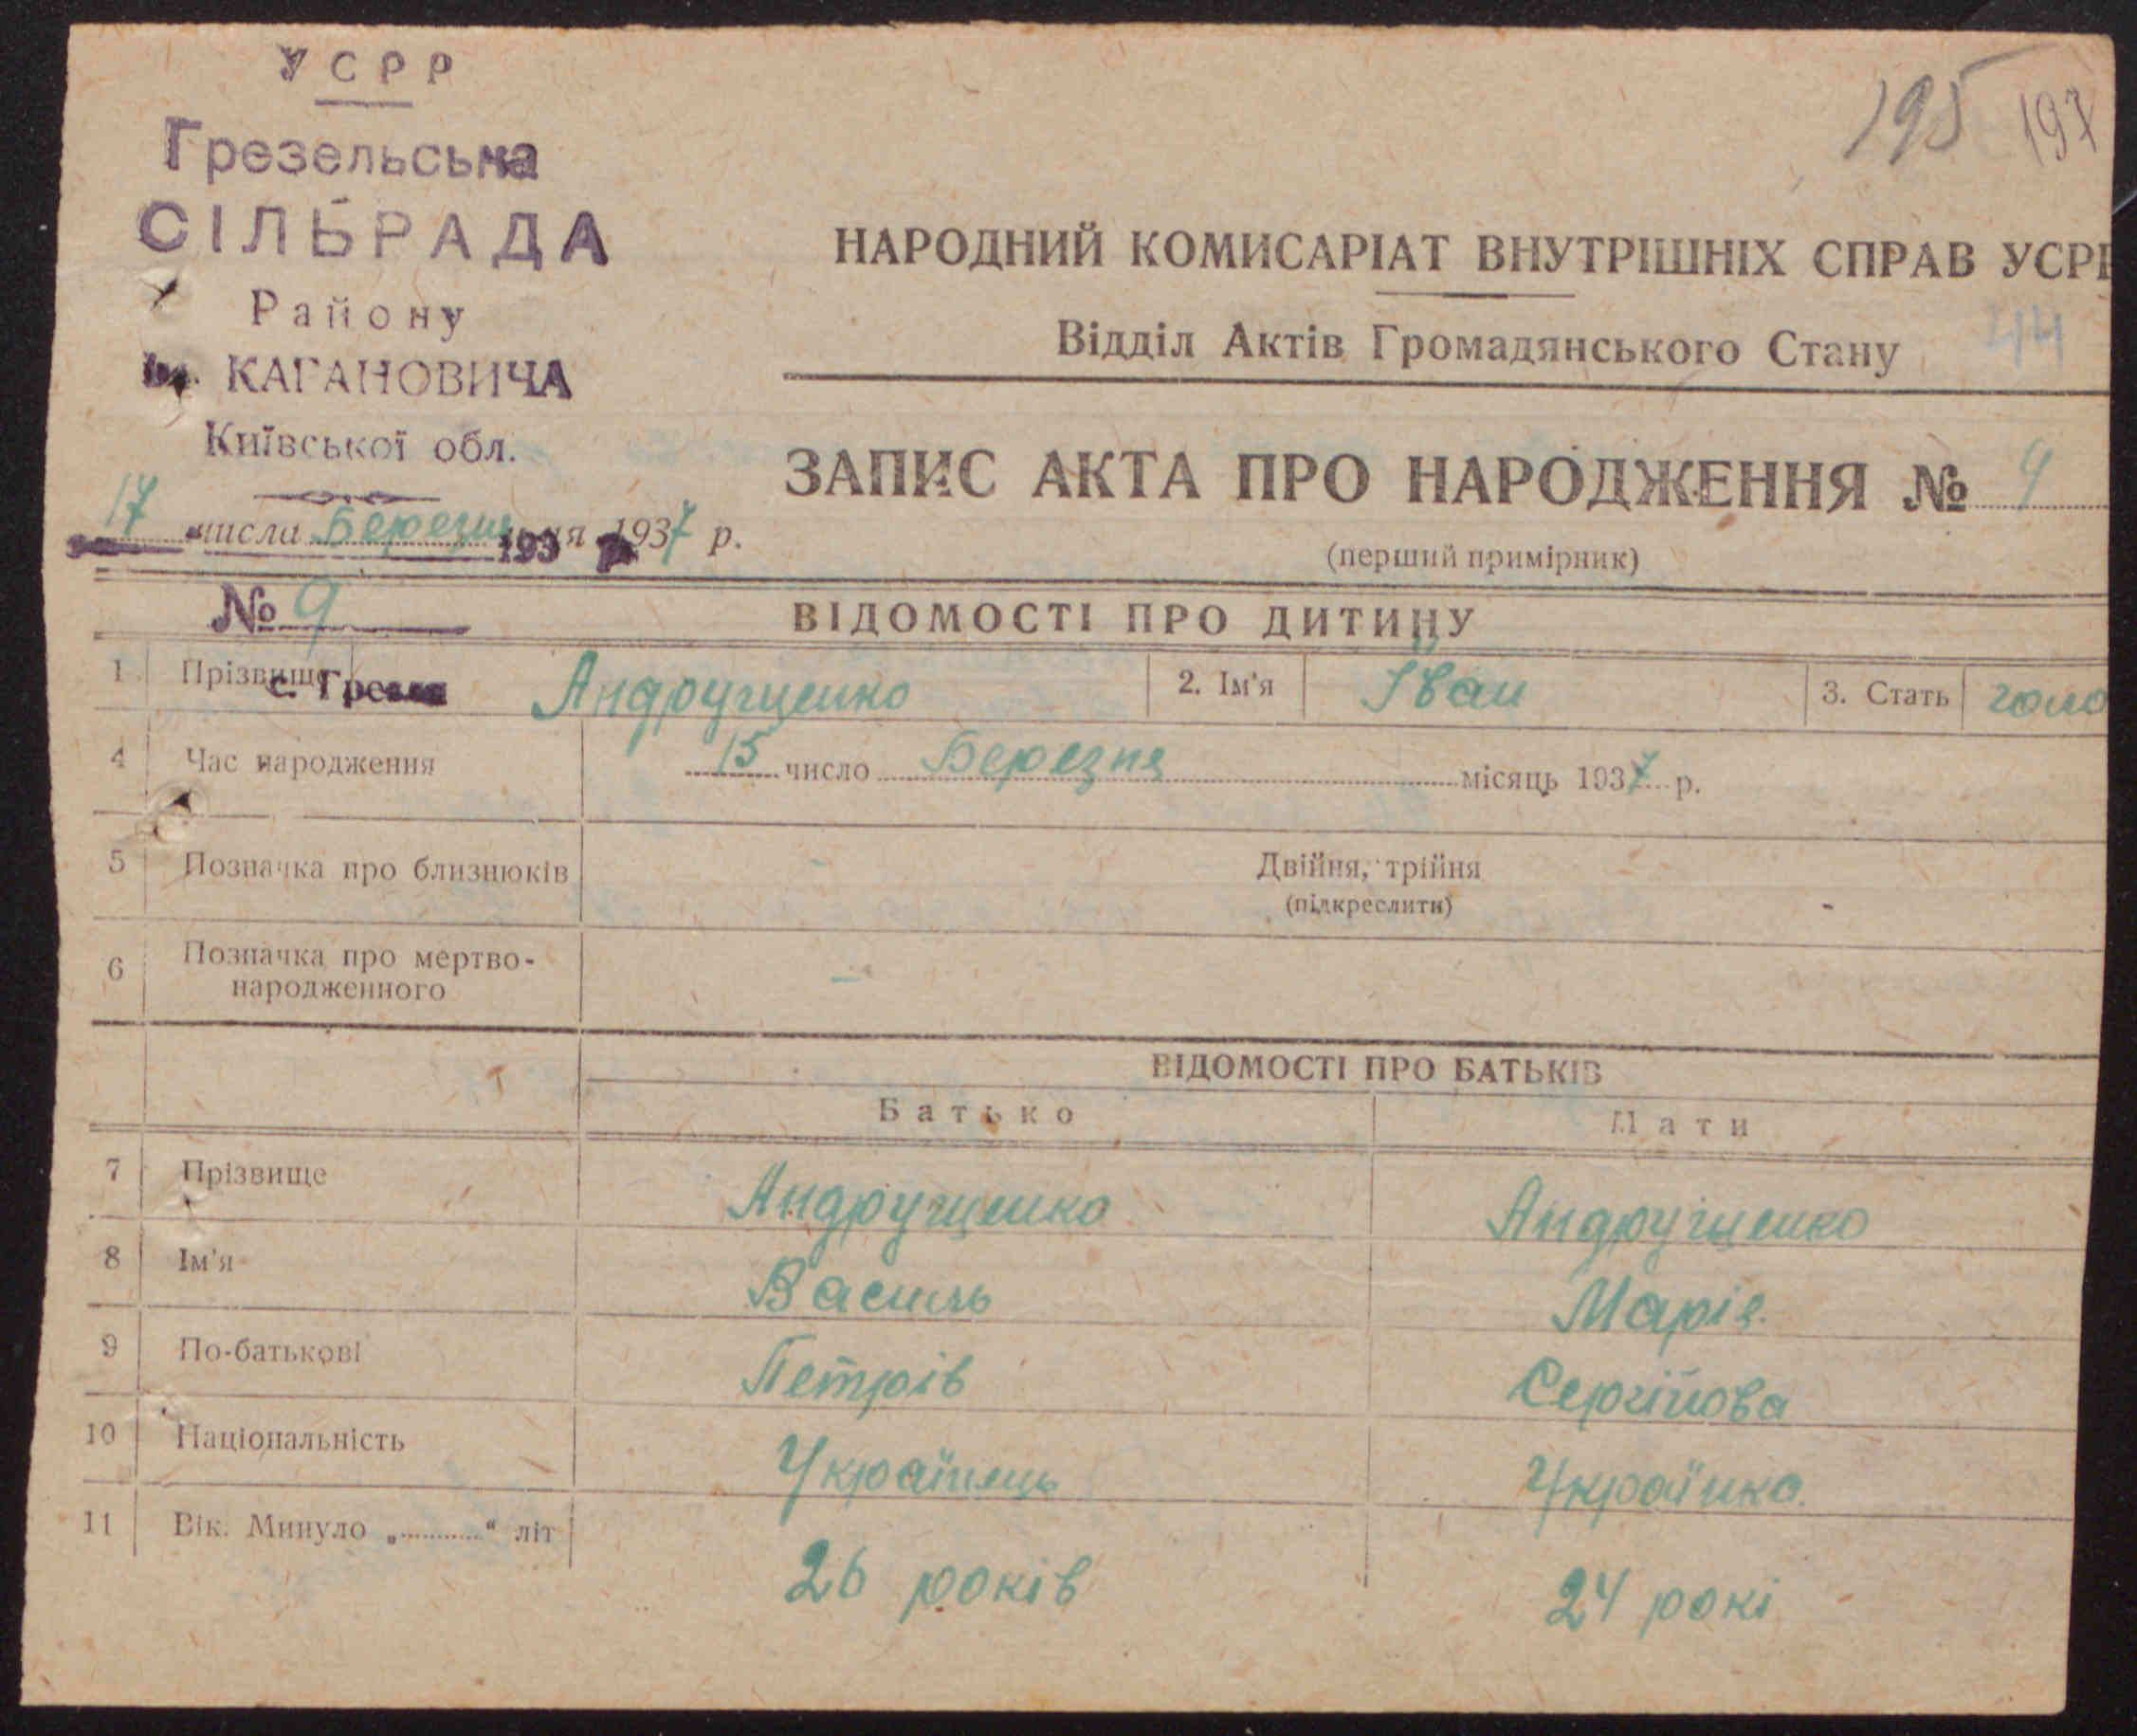 УСРР
Грезельська
СІЛЬРАДА
Району
ім. КАГАНОВИЧА
Київської обл.
195 197
НАРОДНИЙ КОМИСАРІАТ ВНУТРІШНІХ СПРАВ УСРР
Відділ Актів Громадянського Стану 44
ЗАПИС АКТА ПРО НАРОДЖЕННЯ № 9
(перший примірник)
17 числа Березня 1937 р.
193
№ 9
с. Грезля
ВІДОМОСТІ ПРО ДИТИНУ
1 Прізвище Андрущенко 2. Ім'я Іван 3. Стать чоло
4 Час народження 15 число Березня місяць 1937 р.
5 Позначка про близнюків - Двійня, трійня
(підкреслити) -
6 Позначка про мертво-
народженного -
ВІДОМОСТІ ПРО БАТЬКІВ
Батько Мати
7 Прізвище Андрущенко Андрущенко
8 Ім'я Василь Марія.
9 По-батькові Петрів Сергіїова
10 Національність Українець Українка.
11 Вік. Минуло „..........“ літ 26 років 24 рокі